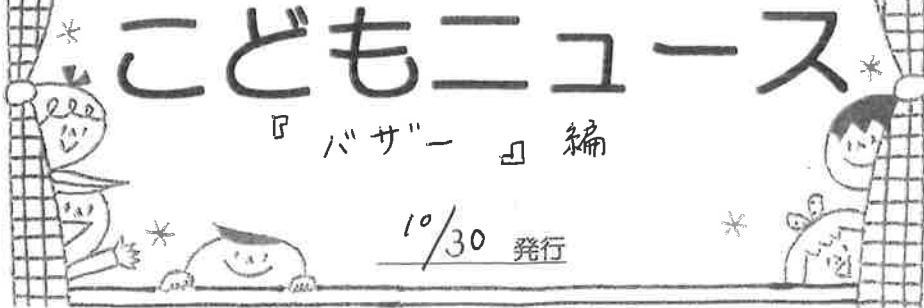 こどもニュース
『バザー』編
10/30 発行